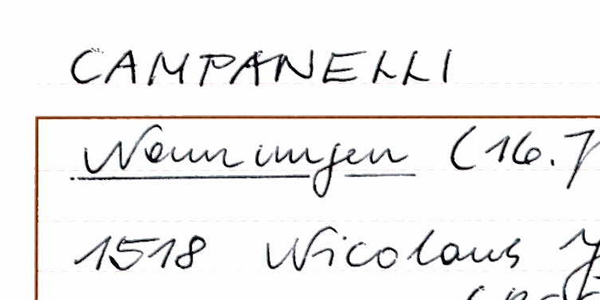 CAMPANELLI
Nennungen (16.7
1518 Nicolaus